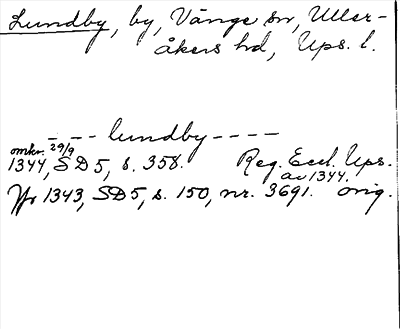 Lundby, by, Vänge sn, Uller-
åkers hd, Ups. l.
- - - lundby - - - -
omkr. 29/9
1344, SD 5, s. 358. Reg. Eccl. Ups.
av 1344.
Jfr 1343, SD 5, s. 150, nr. 3691. orig.